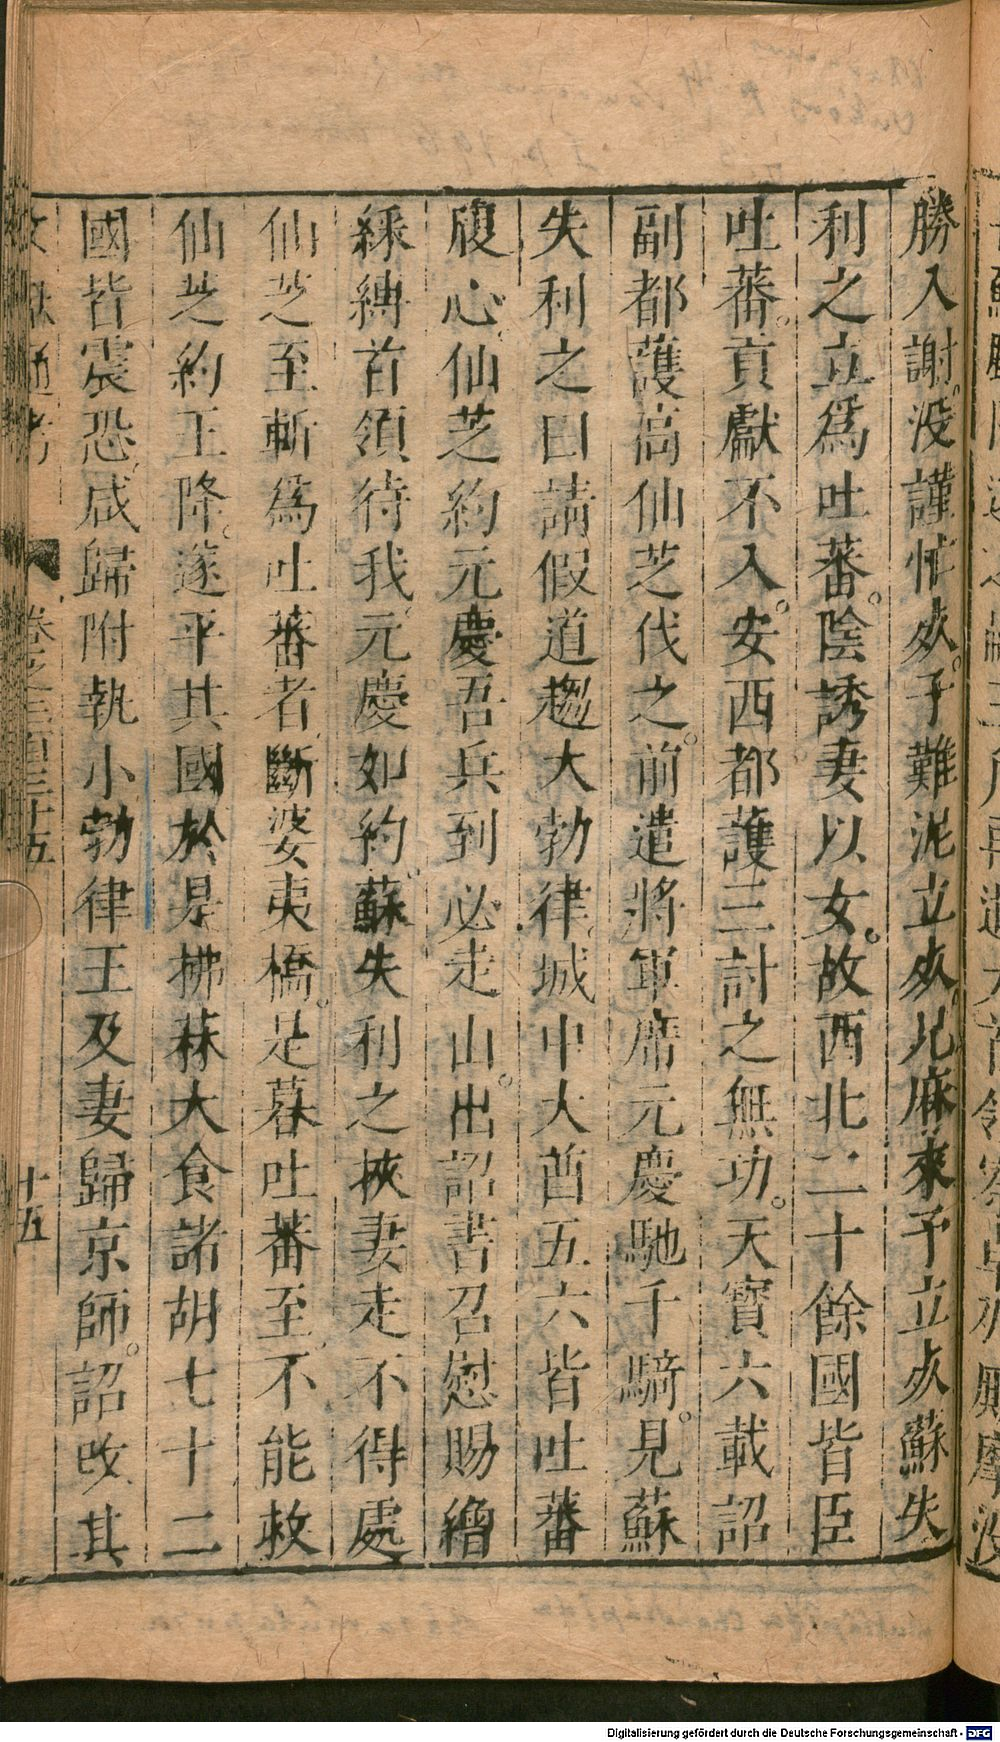 勝入謝。没謹忙死。子難泥立死。兄麻來兮立死蘇失
利之立爲吐蕃。陰誘妻以女。故西北二十餘國皆臣
吐蕃。貢獻不入。安西都護三討之無功。天寶六載詔
副都護高仙芝伐之。前遣將軍席元慶馳千騎。見蘇
失利之曰請假道趨大勃律城中大酋五六皆吐蕃
腹心。仙芝約元慶吾兵到必走山。出詔書召慰賜繒
綵縛首領待我。元慶如約。蘇失利之挾妻走不得處
仙芝至斬爲吐蕃者斷婆夷橋。是暮吐蕃至不能救
仙芝約王降。遂平其國於是拂菻大食諸胡七十二
國皆震恐咸歸附執小勃律王及妻歸京師。詔改其
通考 卷之三百三十五 十五
Digitalisierung gefördert durch die Deutsche Forschungsgemeinschaft - DFG